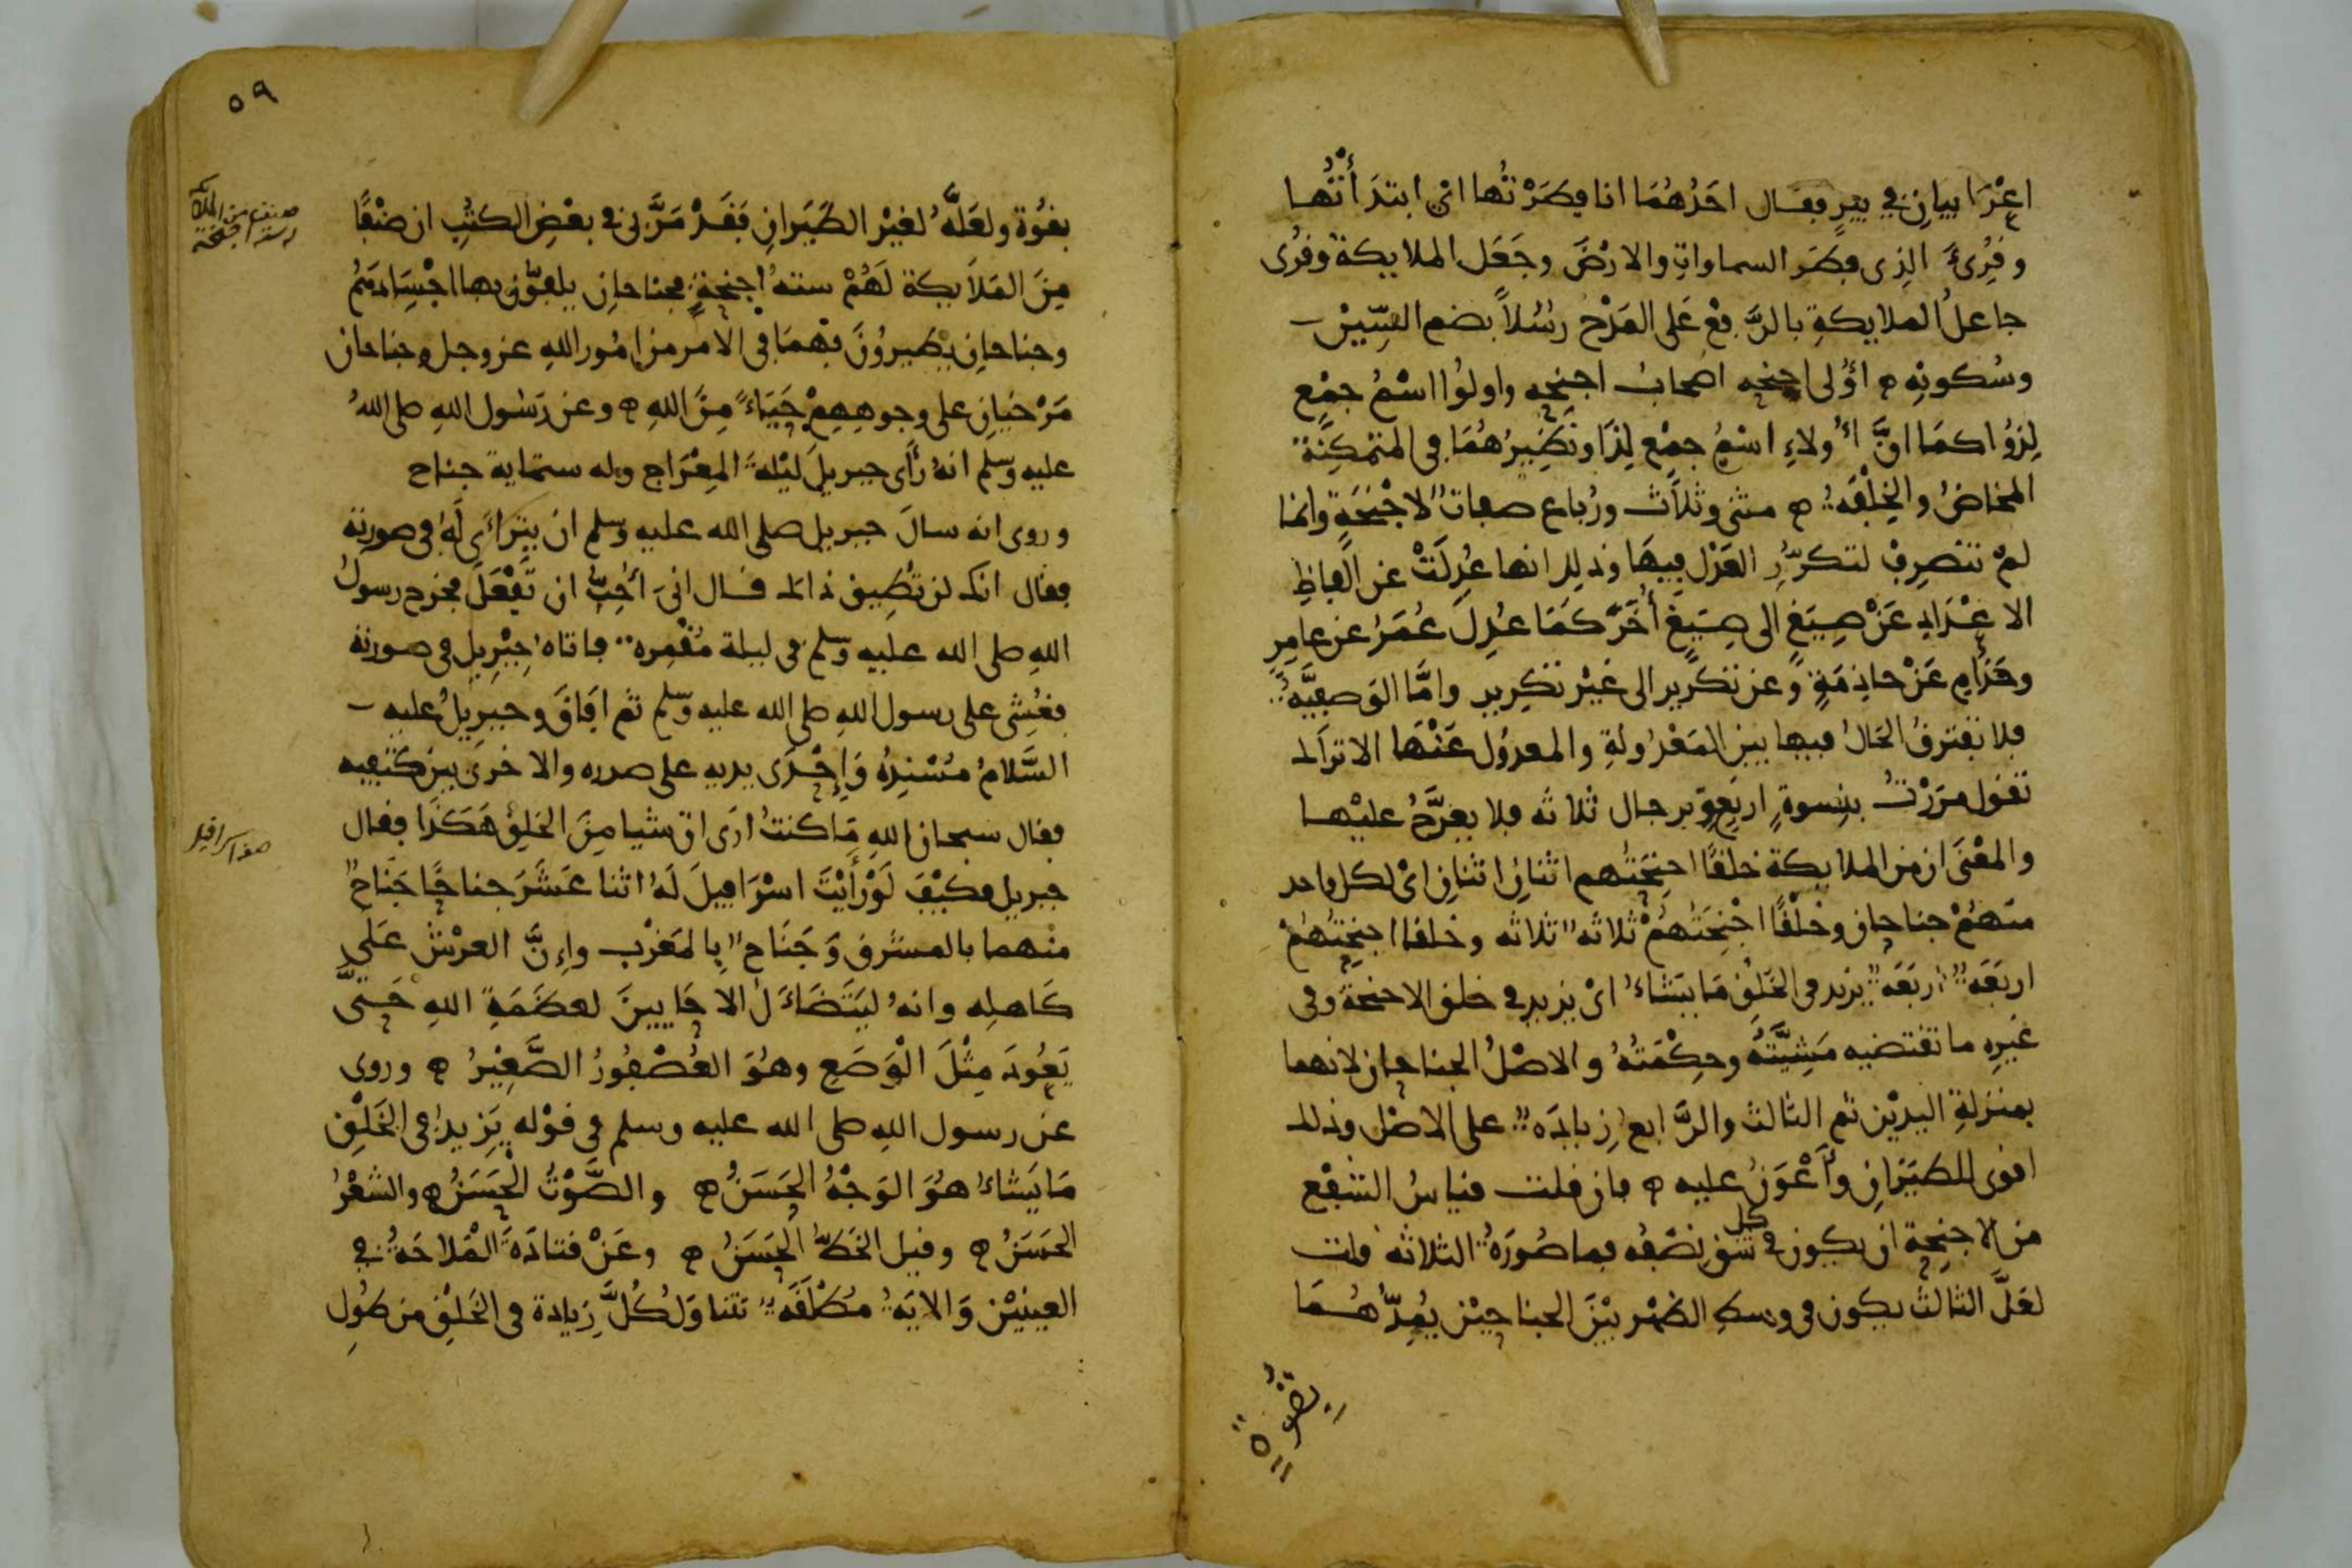 اعرابيان في بير فقال احدهما انا فطرتها اي ابتدأتها
وقرئ الذي فطر السماوات والارض وجعل الملايكة وقرئ
جاعل الملايكة بالرفع على المدح رسلا بضم السين
وسكونه اولى اجنحه اصحاب اجنحه واولوا اسم جمع
لذوا كما ان اولاء اسم جمع لذا ونظيرهما في المتمكنة
المخاض والخلفه مثنى وثلاث ورباع صفات لاجنحة وانما
لم تنصرف لتكرر العدل فيها وذلك انها عدلت عن الفاظ
الاعداد عن صيغ الى صيغ أخر كما عدل عمر عن عامر
وحذام عن حاذمة وعن تكرير الى غير تكرير واما الوصفيه
فلا تفترق الحال فيها بين المعدولة والمعدول عنها الا تراك
تقول مررت بنسوة اربع وبرجال ثلاثه فلا يعرج عليها
والمعنى ان من الملايكة خلقا اجنحتهم اثنان اثنان اي لكل واحد
منهم جناحان وخلقا اجنحتهم ثلاثه ثلاثه وخلقا اجنحتهم
اربعه اربعه يزيد في الخلق ما يشاء اي يزيد في خلق الاجنحة وفي
غيره ما تقتضيه مشيته وحكمته والاصل الجناحان لانهما
بمنزلة اليدين ثم الثالث والرابع زياده على الاصل وذلك
اقوى للطيران وأعون عليه فان قلت قياس الشفع
من الاجنحة ان يكون في كل شق نصفه فما صورة الثلاثه قلت
لعل الثالث يكون في وسط الظهر بين الجناحين يمدهما
بقوة
٥٩
بقوة ولعله لغير الطيران فقد مر بي في بعض الكتب ان صنفا
من الملايكة لهم سته اجنحة فجناحان يلفون بها اجسادهم
وجناحان يطيرون بهما في الامر من امور الله عز وجل وجناحان
مرخيان على وجوههم حياء من الله وعن رسول الله صلى الله
عليه وسلم انه رأى جبريل ليلة المعراج وله ستماية جناح
وروى انه سال جبريل صلى الله عليه وسلم ان يتراءى له في صورته
فقال انك لن تطيق ذالك فقال اني أحب ان تفعل فخرج رسول
الله صلى الله عليه وسلم في ليلة مقمره فاتاه جبريل في صورته
فغشي على رسول الله صلى الله عليه وسلم ثم افاق وجبريل عليه
السلام مسنده وإحدى يديه على صدره والاخرى بين كتفيه
فقال سبحان الله ما كنت ارى ان شيا من الخلق هكذا فقال
جبريل فكيف لو رأيت اسرافيل له اثنا عشر جناحا جناح
منهما بالمشرق وجناح بالمغرب وإن العرش على
كاهله وانه ليتضاءل الاحايين لعظمة الله حتى
يعود مثل الوصع وهو العصفور الصغير وروى
عن رسول الله صلى الله عليه وسلم في قوله يزيد في الخلق
ما يشاء هو الوجه الحسن والصوت الحسن والشعر
الحسن وقيل الخط الحسن وعن قتادة الملاحة في
العينين والايه مطلقه تتناول كل زيادة في الخلق من طول
صنف من الملايكة
له ستة اجنحة
صفة اسرافيل